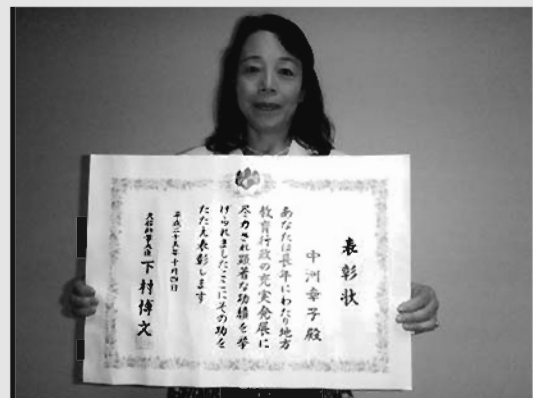 表彰状
中洲幸子殿
あなたは長年にわたり地方
教育行政の充実発展に
尽力され顕著な功績を挙
げられましたここにその功を
たたえ表彰します
平成二十五年十月四日
文部科学大臣 下村博文